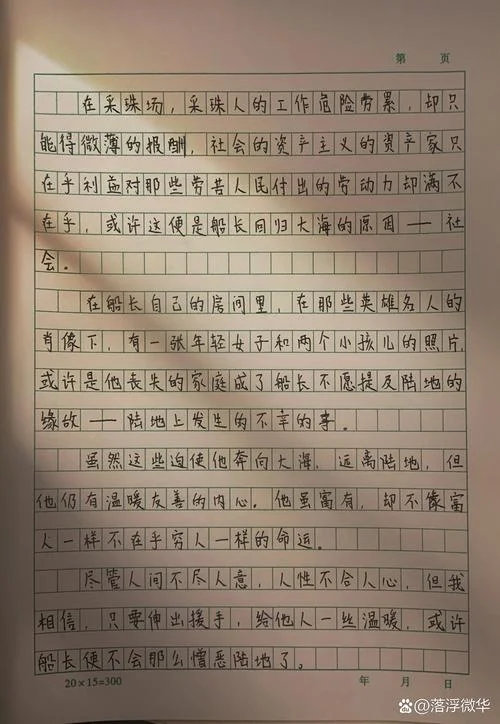 第 页
在采珠场，采珠人的工作危险劳累，却只
能得微薄的报酬，社会的资产主义的资产家只
在乎利益对那些劳苦人民付出的劳动力却满不
在乎，或许这便是船长回归大海的原因——社
会。
在船长自己的房间里，在那些英雄名人的
肖像下，有一张年轻女子和两个小孩儿的照片，
或许是他丧失的家庭成了船长不愿提及陆地的
缘故——陆地上发生的不幸的事。
虽然这些迫使他奔向大海，远离陆地，但
他仍有温暖友善的内心。他虽富有，却不像富
人一样不在乎穷人一样的命运。
尽管人间不尽人意，人性不合人心，但我
相信，只要伸出援手，给他人一些温暖，或许
船长便不会那么憎恶陆地了。
20×15=300 年 月 日
@落浮微华